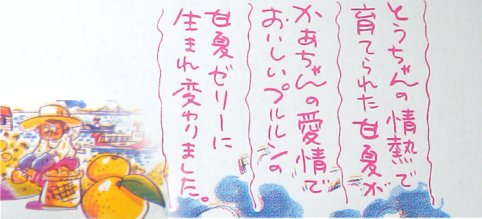 とうちゃんの情熱で
育てられた甘夏が
かあちゃんの愛情で
おいしいプルルンの
甘夏ゼリーに
生まれ変わりました。